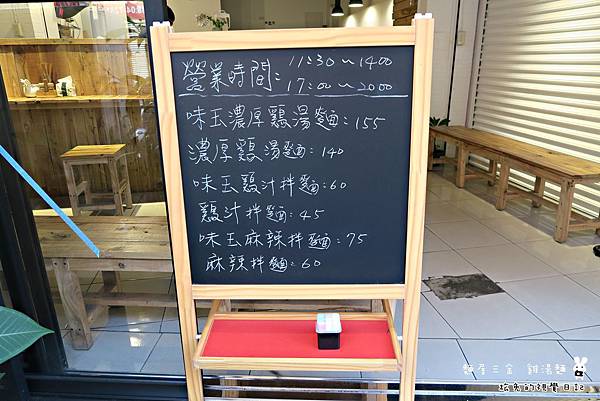 營業時間：11:30～1400
17:00～2000
味玉濃厚鷄湯麵：155
濃厚鷄湯麵：140
味玉鷄汁拌麵：60
鷄汁拌麵：45
味玉麻辣拌麵：75
麻辣拌麵：60
麵屋三金 雞湯麵
拉兔的視覺日記